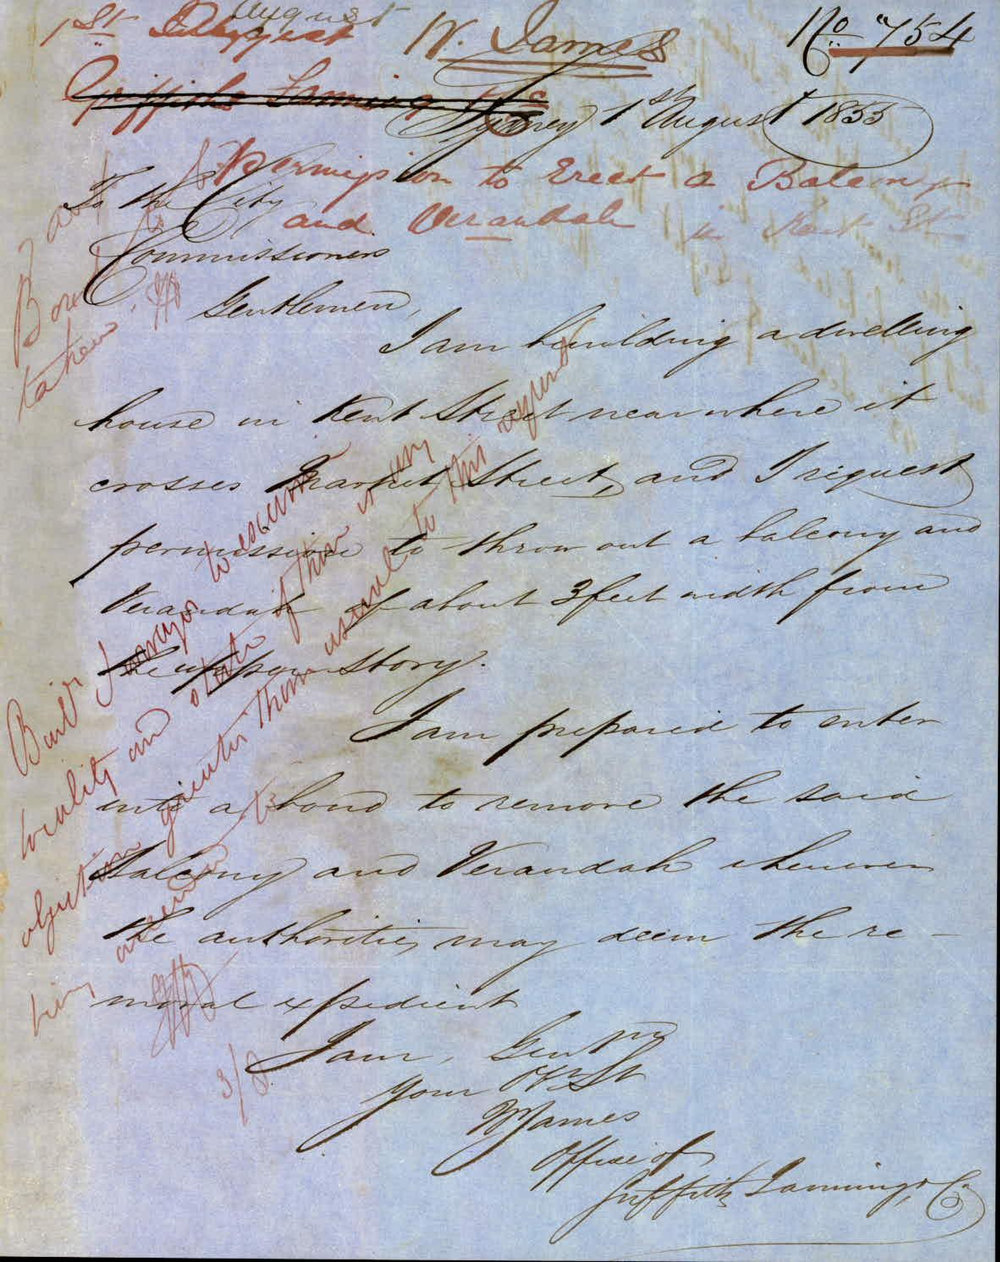 August
1st August W. James No. 754
Griffiths Fanning & Co
Sydney 1st August 1855
Permission to Erect a Balcony
and Verandah in Kent St
To the City
Commissioners
Gentlemen,
I am building a dwelling
house in Kent Street near where it
crosses Market Street, and I request
permission to throw out a balcony and
Verandah of about 3 feet width from
the upper Story.
I am prepared to enter
into a bond to remove the said
Balcony and Verandah whenever
the authorities may deem the re-
moval expedient
I am, Gentn
Your Obt St
W James
Office of
Griffiths Fanning & Co.
taken
Build Surveyor to
locality and state if there is any
objection greater than usual to this
being
3/8